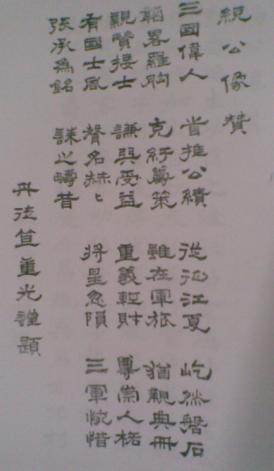 統公像贊
三國偉人 首推公績 從征江夏 屹然磐石
韜畧羅胸 克紓籌策 雖在軍旅 猶親典冊
親賢接士 謙與受益 重義輕財 尊崇人格
有國士風 聲名赫〻 將星忽隕 三軍惋惜
張承為銘 誄之疇昔
丹徒笪重光謹題